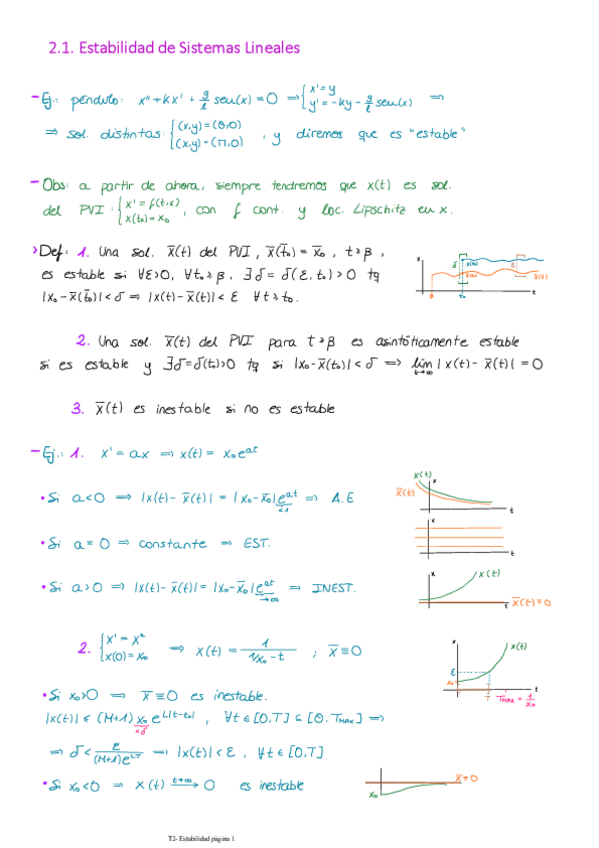 2.1. Estabilidad de Sistemas Lineales
- Ej.: péndulo: x'' + kx' + g/l sen(x) = 0 ⟹ { x' = y
y' = -ky - g/l sen(x) ⟹
⟹ sol. distintas: { (x,y) = (0,0)
(x,y) = (π,0) , y diremos que es "estable"
- Obs: a partir de ahora, siempre tendremos que x(t) es sol.
del PVI: { x' = f(t,x)
x(t₀) = x₀ , con f cont. y loc. Lipschitz en x.
> Def: 1. Una sol. x̄(t) del PVI, x̄(t̄₀) = x̄₀, t > β,
es estable si ∀ε>0, ∀t₀ ≥ β, ∃δ = δ(ε, t₀) > 0 tq
|x₀ - x̄(t₀)| < δ ⟹ |x(t) - x̄(t)| < ε ∀t ≥ t₀.
x δ x(t₀) x̄(t₀) ε x̄(t) β t₀ t
2. Una sol. x̄(t) del PVI para t > β es asintóticamente estable
si es estable y ∃δ = δ(t₀) > 0 tq si |x₀ - x̄(t₀)| < δ ⟹ lim t→∞ |x(t) - x̄(t)| = 0
3. x̄(t) es inestable si no es estable
- Ej.: 1. x' = ax ⟹ x(t) = x₀e^{at}
• Si a<0 ⟹ |x(t) - x̄(t)| = |x₀ - x̄₀| e^{at} <1 ⟹ A.E
x(t) x x̄(t) t
• Si a = 0 ⟹ constante ⟹ EST.
x t
• Si a>0 ⟹ |x(t) - x̄(t)| = |x₀ - x̄₀| e^{at} →∞ ⟹ INEST.
x x(t) t x̄(t) = 0
2. { x' = x²
x(0) = x₀ ⟹ x(t) = 1/(1/x₀ - t) ; x̄ ≡ 0
• Si x₀>0 ⟹ x̄ ≡ 0 es inestable.
x x(t) ε x₀ T t T_MAX = 1/x₀
|x(t)| ≤ (M+1) x₀ <δ e^{L|t-t₀|}, ∀t ∈ [0,T] ⊆ [0, T_MAX] ⟹
⟹ δ < ε/((M+1)e^{LT}) ⟹ |x(t)| < ε, ∀t ∈ [0,T]
• Si x₀<0 ⟹ x(t) t→∞ → 0 es inestable
x₀ x̄ ≡ 0
T2- Estabilidad página 1